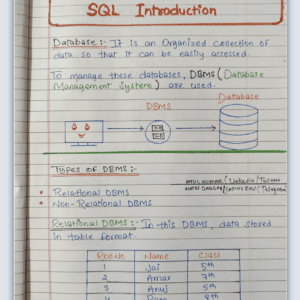 SQL Introduction
Database :- It is an Organized collection of
data so that it can be easily accessed.
To manage these databases, DBMS (Database
Management System) are used.
DBMS
Database
Types of DBMS :-
Relational DBMS
Non-Relational DBMS
Relational DBMS :- In this DBMS, data stored
in table format.
Roll No Name Class
1 Jai 5th
2 Amar 7th
3 Anuj 5th
4 8th